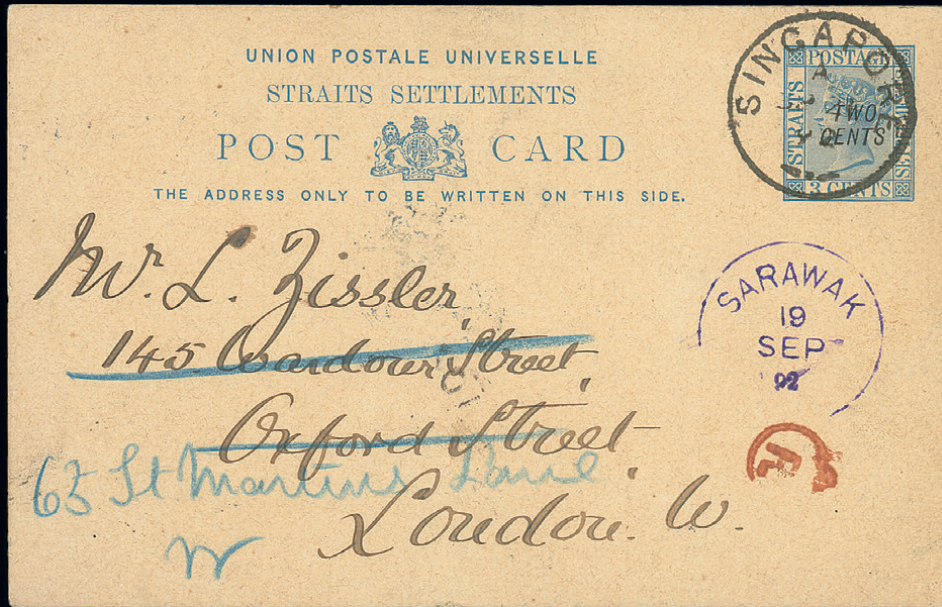 UNION POSTALE UNIVERSELLE
STRAITS SETTLEMENTS
POST CARD
THE ADDRESS ONLY TO BE WRITTEN ON THIS SIDE.
SINGAPORE
A
POSTAGE
STRAITS
TWO
CENTS
3 CENTS
SARAWAK
19
SEP
92
Mr. L. Zissler,
145. Wardour Street,
Oxford Street.
63 St Martins Lane
London. W.
W